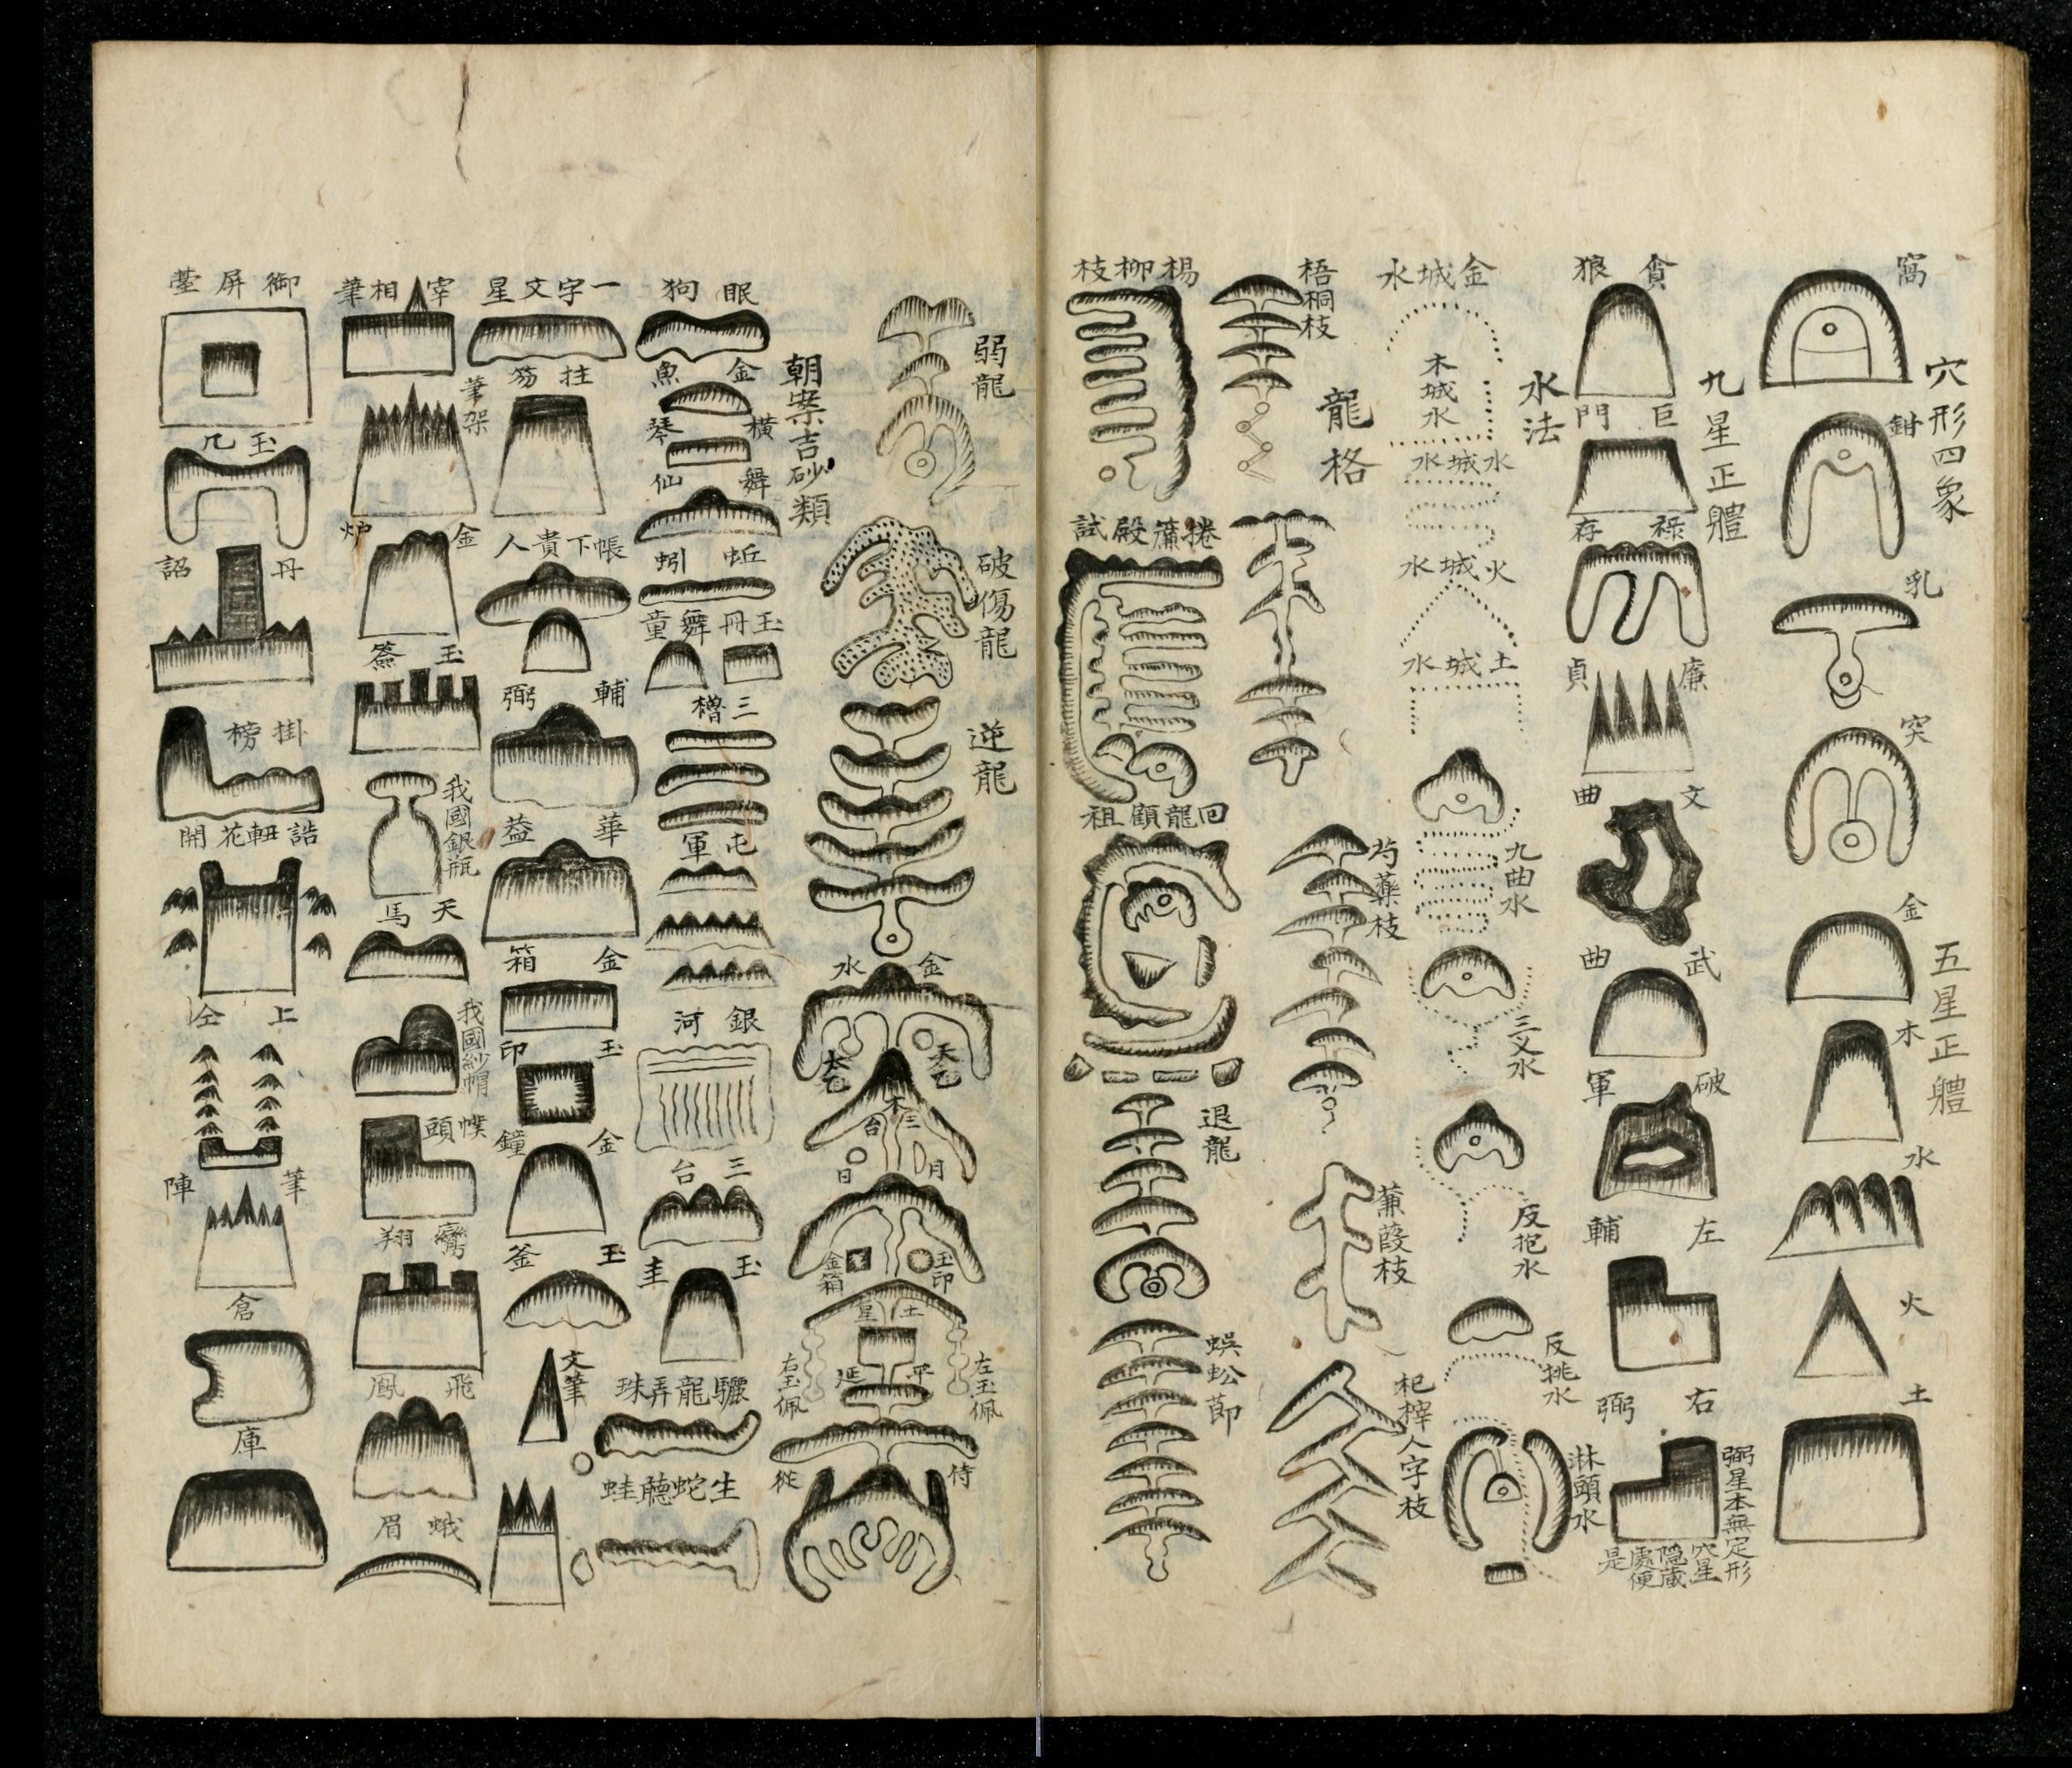 穴形四象
窩
鉗
乳
突
五星正體
金
木
水
火
土
九星正體
貪狼
巨門
祿存
廉貞
文曲
武曲
破軍
左輔
右弼
弼星本無定形
穴星
隱藏
處便
是
水法
金城水
木城水
水城水
火城水
土城水
九曲水
三义水
反抱水
反挑水
淋頭水
龍格
梧桐枝
芍藥枝
蒹葭枝
杞梓人字枝
楊柳枝
捲簾殿試
回龍顧祖
退龍
蜈蚣節
弱龍
破傷龍
逆龍
金水
天乙
太乙
木
三台
月
日
玉印
金箱
土星
左玉佩
右玉佩
平
延
侍從
朝案吉砂類
眠狗
金魚
橫琴
舞仙
蚯蚓
玉冊舞童
三櫓
屯軍
銀河
三台
玉圭
驪龍弄珠
生蛇聽蛙
一字文星
拄笏
帳下貴人
輔弼
華盖
金箱
玉印
金鐘
玉釜
文筆
宰相筆
筆架
金炉
玉簪
我國銀瓶
天馬
我國紗帽
幞頭
鸞翔
飛鳳
蛾眉
御屏臺
玉几
丹詔
掛榜
誥軸花開
上仝
筆陣
倉
庫